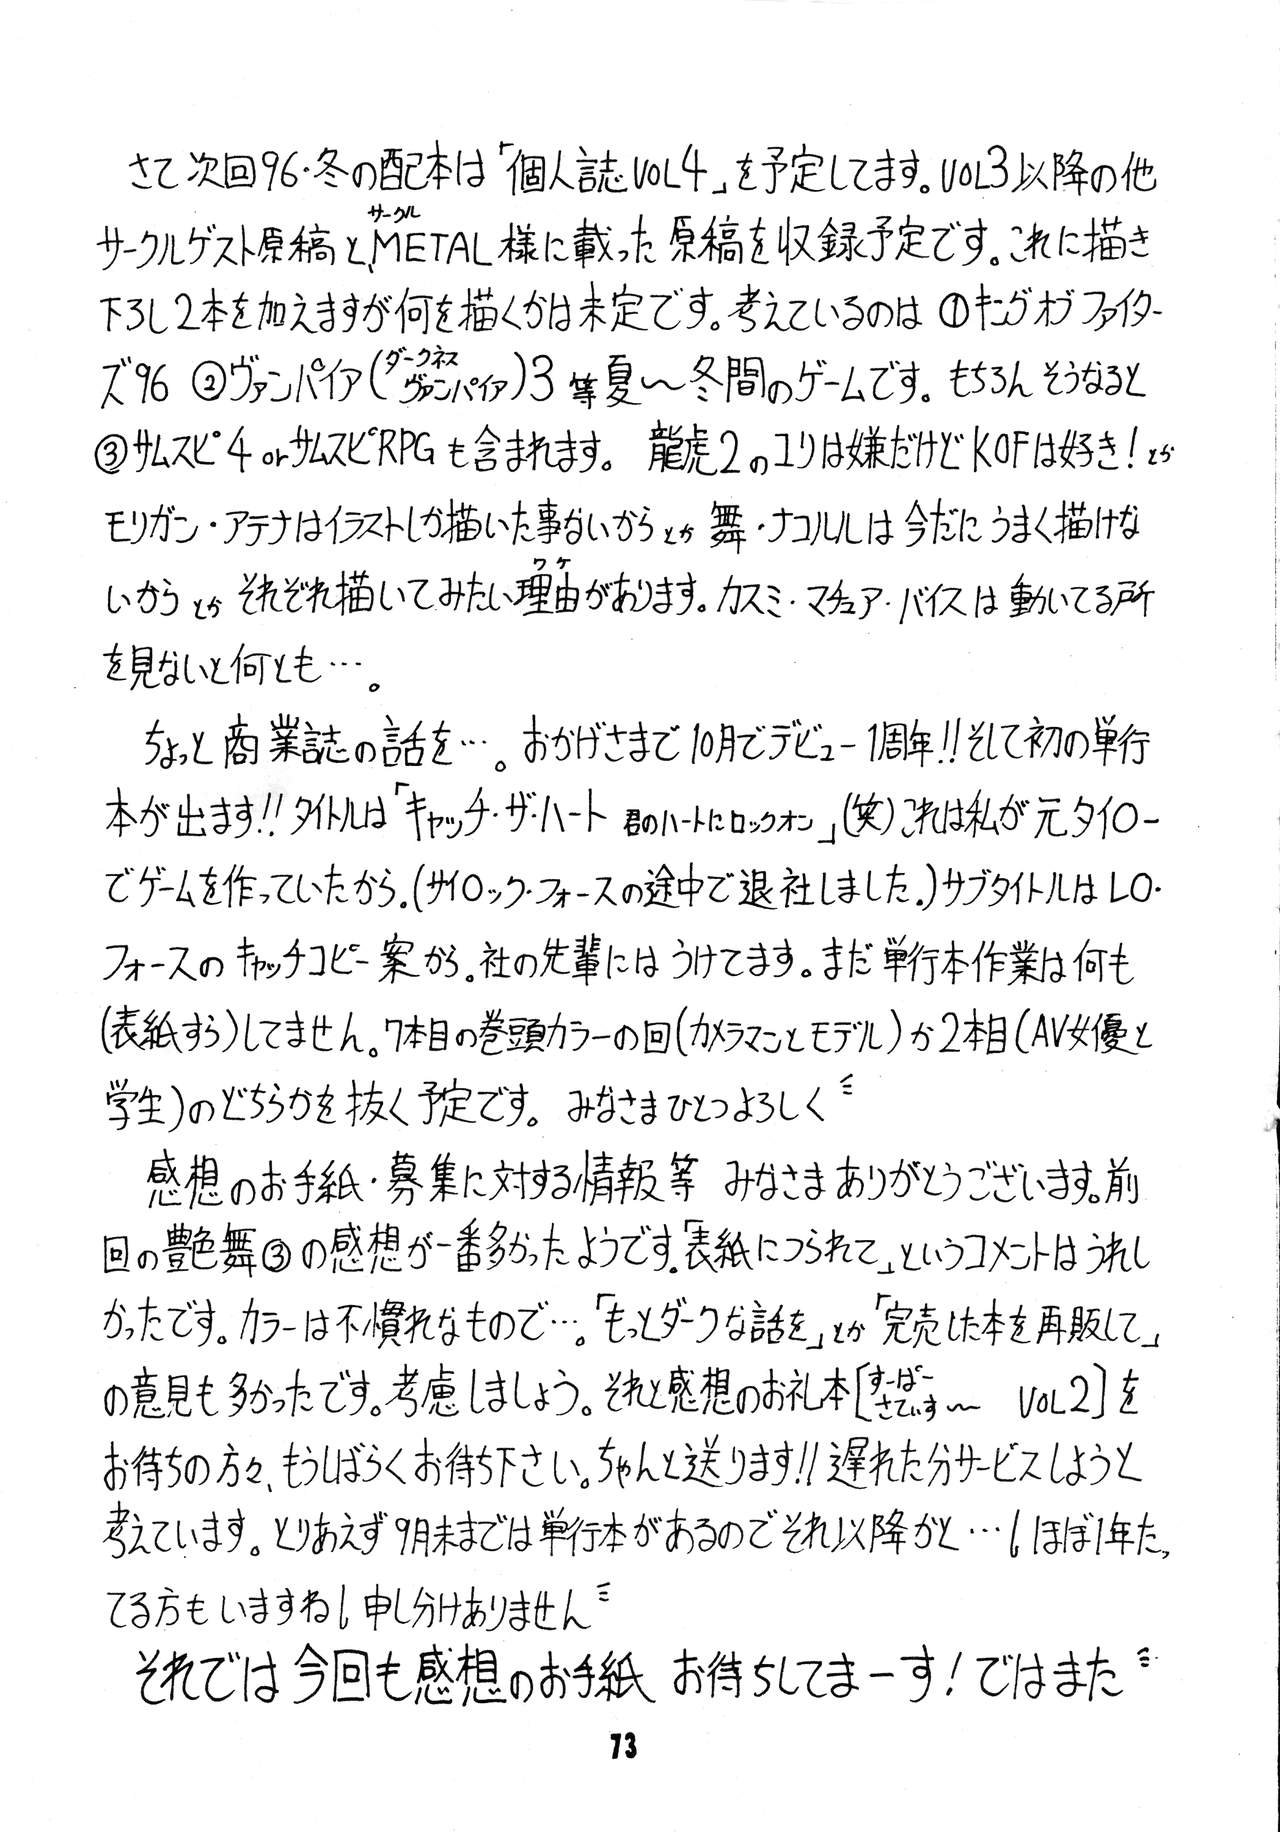 さて次回96・冬の配本は「個人誌VOL4」を予定してます。VOL3以降の他
サークルゲスト原稿と、サークルMETAL様に載った原稿を収録予定です。これに描き
下ろし2本を加えますが何を描くかは未定です。考えているのは ①キングオブファイター
ズ'96 ②ヴァンパイア(ダークネスヴァンパイア)3 等夏〜冬間のゲームです。もちろんそうなると
③サムスピ4orサムスピRPGも含まれます。 龍虎2のユリは嫌だけどKOFは好き!とか
モリガン・アテナはイラストしか描いた事ないからとか 舞・ナコルルは今だにうまく描けな
いからとか それぞれ描いてみたい理由(ワケ)があります。カスミ・マチュア・バイスは動いてる所
を見ないと何とも…。
ちょっと商業誌の話を…。おかげさまで10月でデビュー1周年!!そして初の単行
本が出ます!!タイトルは「キャッチ・ザ・ハート 君のハートにロックオン」(笑)これは私が元タイロー
でゲームを作っていたから。(サイロック・フォースの途中で退社しました。)サブタイトルはLO・
フォースのキャッチコピー案から。社の先輩にはうけてます。まだ単行本作業は何も
(表紙すら)してません。7本目の巻頭カラーの回(カメラマンとモデル)か2本目(AV女優と
学生)のどちらかを抜く予定です。 みなさまひとつよろしく
感想のお手紙・募集に対する情報等 みなさまありがとうございます。前
回の艶舞③の感想が一番多かったようです。「表紙につられて」というコメントはうれし
かったです。カラーは不慣れなもので…。「もっとダークな話を」とか「完売した本を再販して」
の意見も多かったです。考慮しましょう。それと感想のお礼本[すーぱーさてぃすー VOL2]を
お待ちの方々、もうしばらくお待ち下さい。ちゃんと送ります!!遅れた分サービスしようと
考えています。とりあえず9月末までは単行本があるのでそれ以降かと…(ほぼ1年た
ってる方もいますね)申し分けありません
それでは今回も感想のお手紙 お待ちしてまーす!ではまた
73